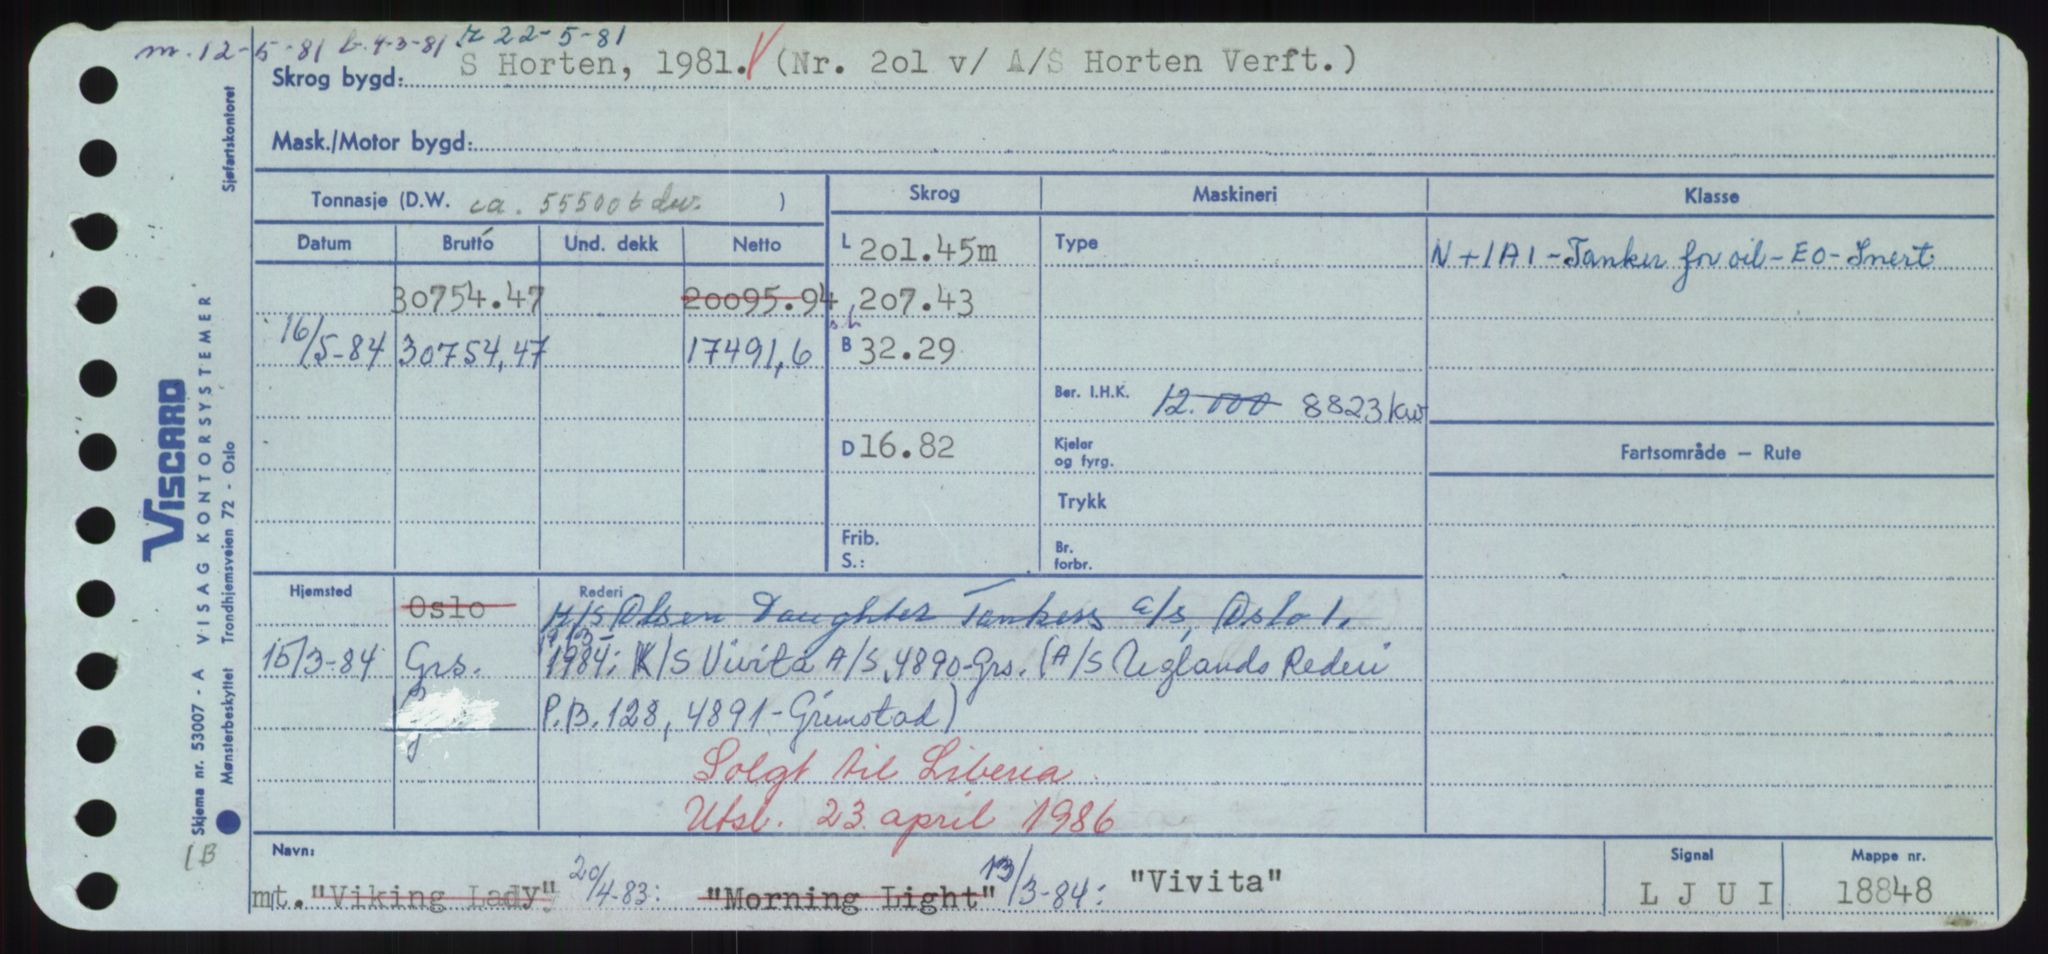 m. 12-5-81 b. 4-3-81 r 22-5-81
Skrog bygd: S Horten, 1981. (Nr. 2o1 v/ A/S Horten Verft.)
Mask./Motor bygd:
Tonnasje (D.W. ca. 55500 t dw. )
Skrog Maskineri Klasse
Datum Brutto Und. dekk Netto
L 2o1.45m Type N+1A1-Tanker for oil-EO-Inert
30754.47 20095.94 207.43
16/5-84 30754,47 17491,6 B 32.29
Ber. I.H.K. 12.000 8823 kw
D 16.82 Kjelar og fyrg.
Fartsområde — Rute
Trykk
Frib. S.: Br. forbr.
Hjemsted Rederi
Oslo K/S Olsen Daughter Tankers A/S, Oslo 1.
15/3-84 Grs. 1984: K/S Vivita A/S, 4890-Grs. (A/S Uglands Rederi
P.B. 128, 4891-Grimstad)
Solgt til Liberia
Utsl. 23. april 1986
Navn:
mt. "Viking Lady" 20/4-83: "Morning Light" 13/3-84: "Vivita"
Signal L J U I
Mappe nr. 18848
1B
VISCARD
VISAG KONTORSYSTEMER
Skjema nr. 53007 - A
Mønsterbeskyttet Trondhjemsveien 72 - Oslo
Sjøfartskontoret